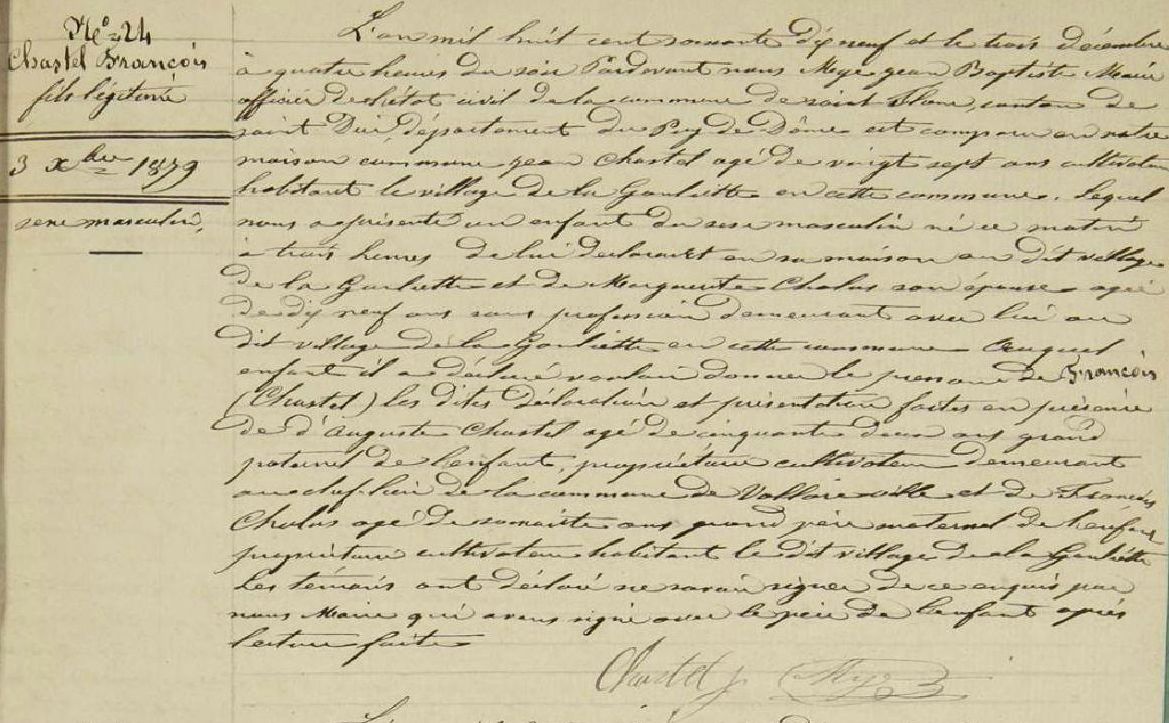 N° 24
Chastel François
fils légitime
3 xbre 1879
sexe masculin,
L'an mil huit cent soixante dix neuf et le trois décembre
à quatre heures du soir Pardevant nous Mège jean Baptiste Maire
officier de l'état civil de la commune de saint canton de
saint département du Puy de Dôme est comparu en notre
maison commune jean Chastel agé de vingt sept ans cultivateur
habitant le village de la Gouliette en cette commune. Lequel
nous a présenté un enfant du sexe masculin né ce matin
à trois heures de lui déclarant en sa maison au dit village
de la Gouliette et de Marguerite Chalus son épouse agée
de dix neuf ans sans profession demeurant avec lui au
dit village de la Gouliette en cette commune Auquel
enfant il a déclaré vouloir donner le prenom de François
(Chastel) les dites déclaration et présentation faites en présence
de d'Auguste Chastel agé de cinquante deux ans grand
paternel de l'enfant, propriétaire cultivateur demeurant
au chef-lieu de la commune de et de François
Chalus agé de soixante ans grand père maternel de l'enfant
propriétaire cultivateur habitant le dit village de la Gouliette
Les témoins ont déclaré ne savoir signer de ce enquis par
nous Maire qui avons signé avec le père de l'enfant après
lecture faite
Chastel j Mège